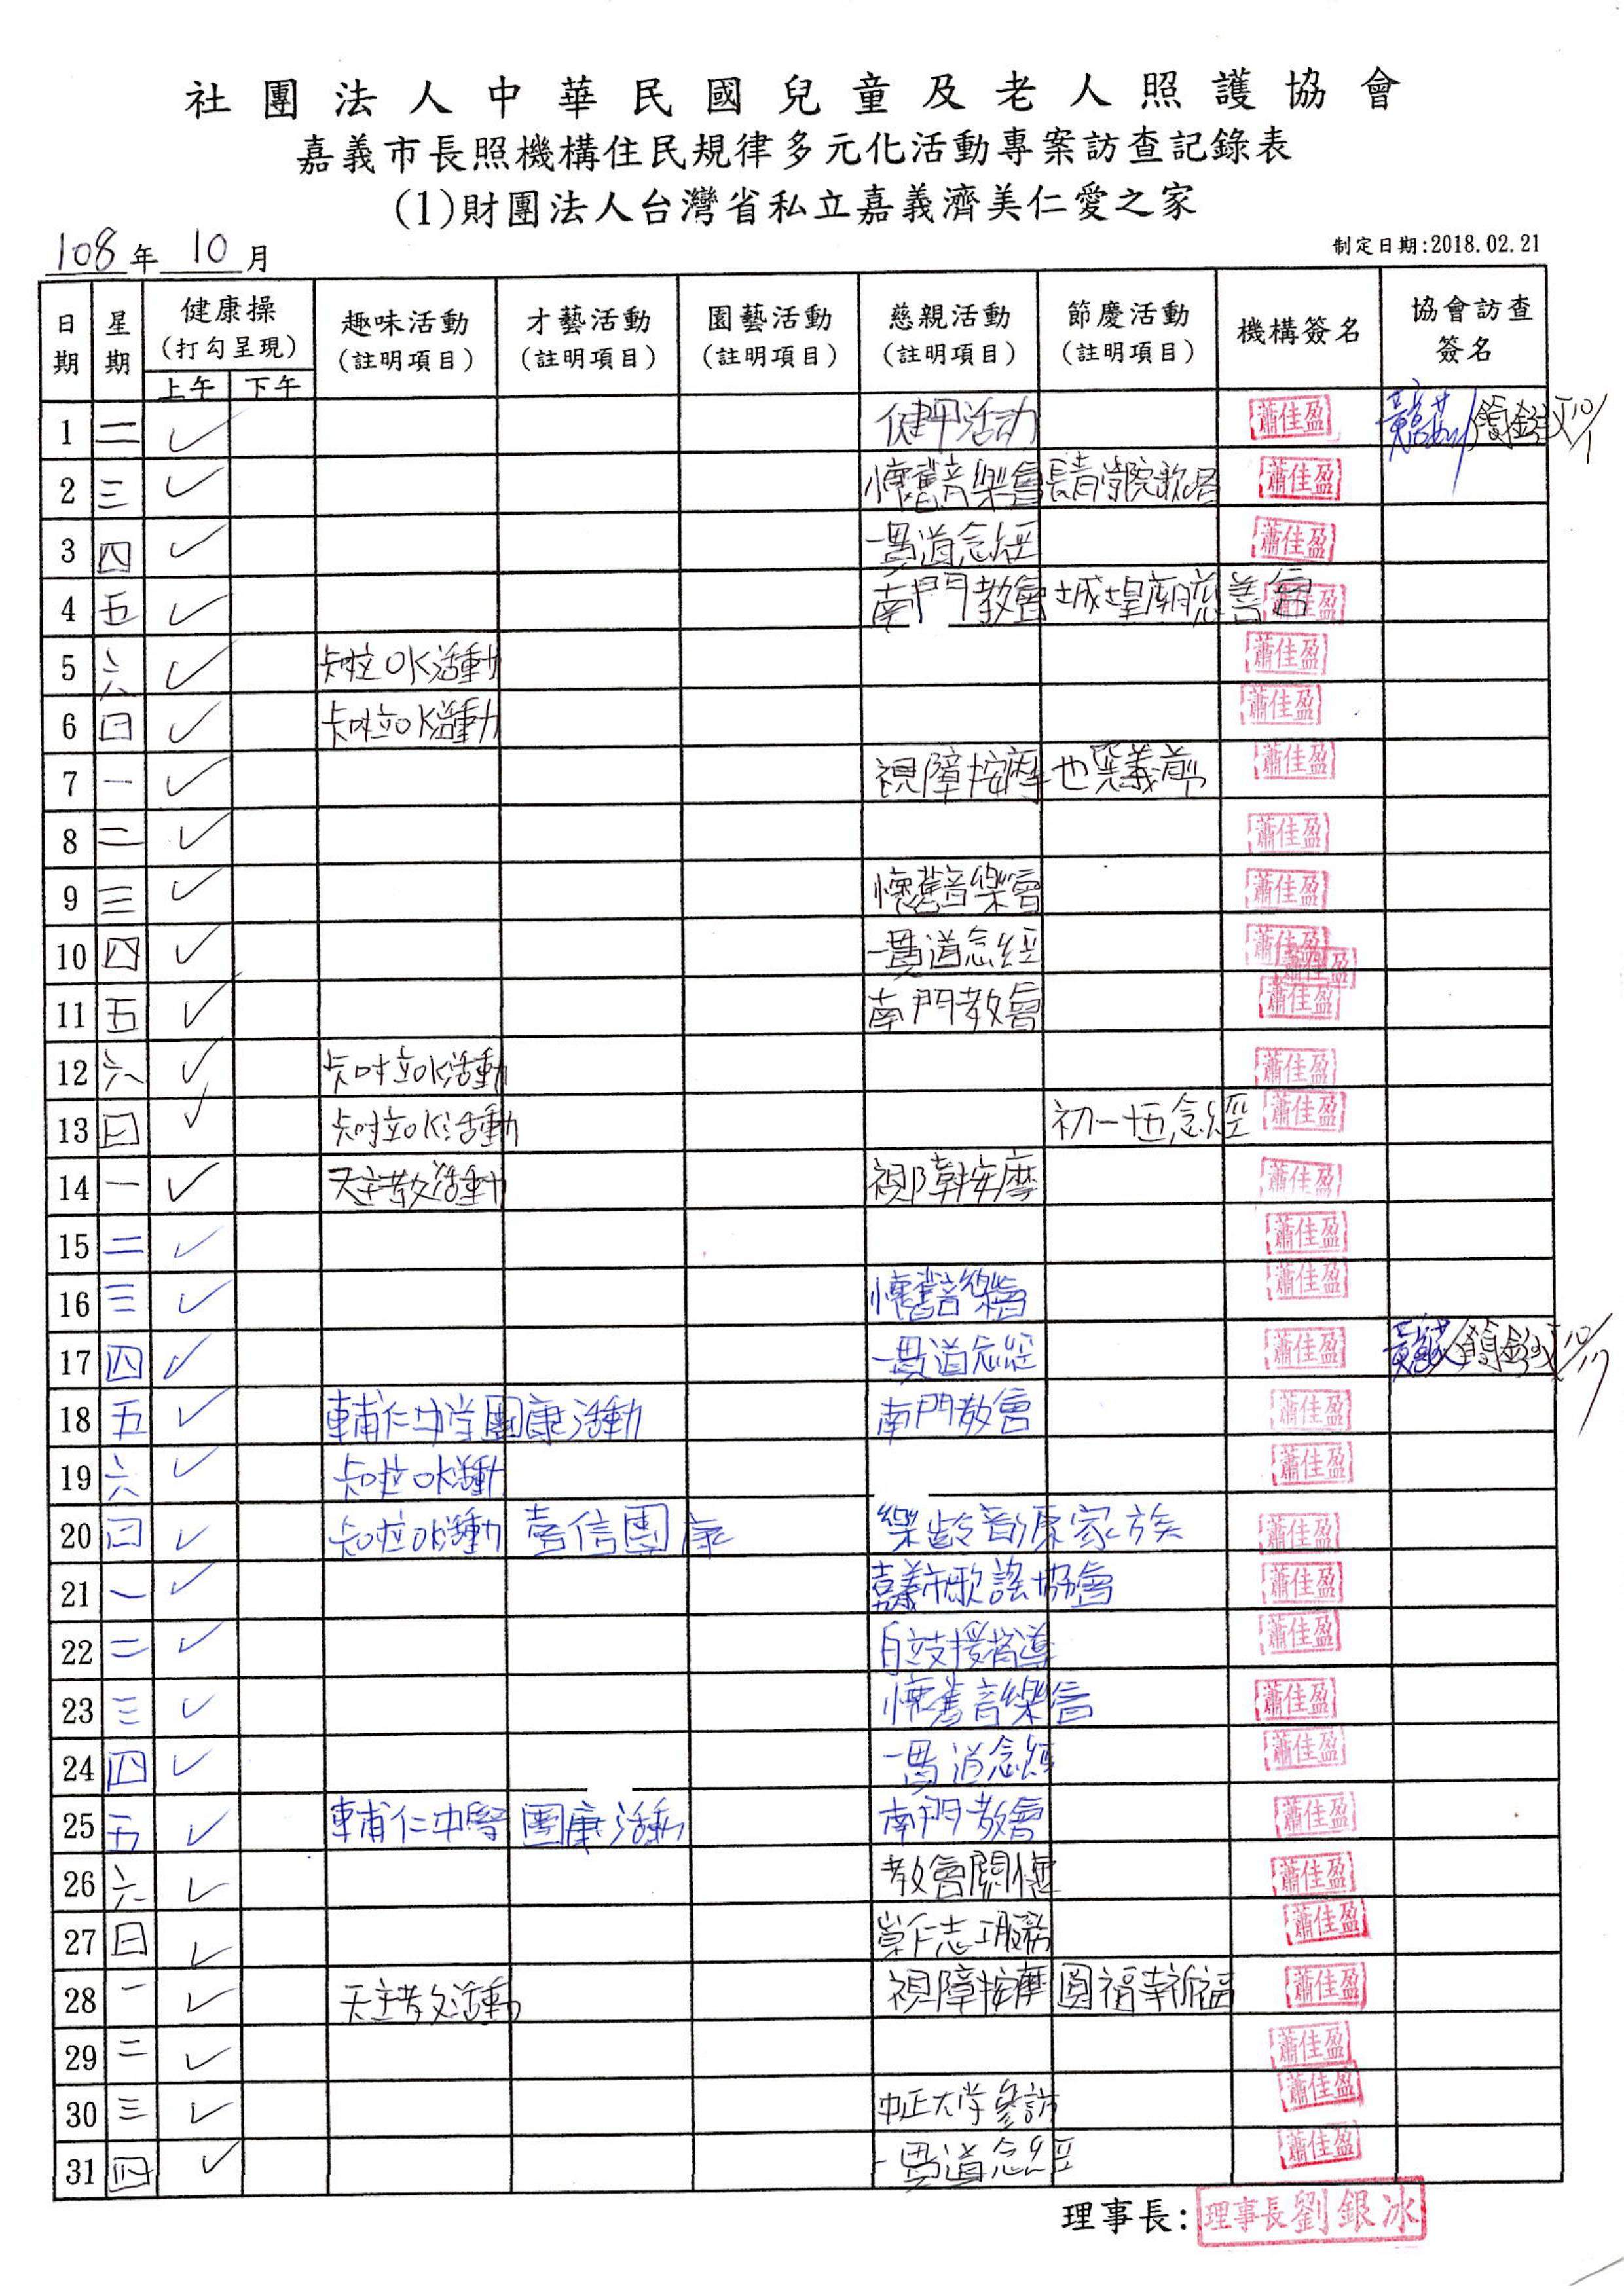 社團法人中華民國兒童及老人照護協會
嘉義市長照機構住民規律多元化活動專案訪查記錄表
(1)財團法人台灣省私立嘉義濟美仁愛之家
108年 10月 制定日期:2018.02.21
日期 星期 健康操(打勾呈現) 上午 下午 趣味活動(註明項目) 才藝活動(註明項目) 園藝活動(註明項目) 慈親活動(註明項目) 節慶活動(註明項目) 機構簽名 協會訪查簽名
1 二 ✓ 活动 蕭佳盈 10/1
2 三 ✓ 懷舊音樂會 長青學院歌唱 蕭佳盈
3 四 ✓ 一貫道念經 蕭佳盈
4 五 ✓ 南門教會 城隍廟慈善會 蕭佳盈
5 六 ✓ 卡拉OK活動 蕭佳盈
6 日 ✓ 卡啦OK活動 蕭佳盈
7 一 ✓ 視障按摩 義剪 蕭佳盈
8 二 ✓ 蕭佳盈
9 三 ✓ 懷舊音樂會 蕭佳盈
10 四 ✓ 一貫道念經 蕭佳盈 蕭佳盈
11 五 ✓ 南門教會 蕭佳盈
12 六 ✓ 卡啦OK活動 蕭佳盈
13 日 ✓ 卡啦OK活動 初一十五念經 蕭佳盈
14 一 ✓ 天主教活動 視障按摩 蕭佳盈
15 二 ✓ 蕭佳盈
16 三 ✓ 懷舊音樂會 蕭佳盈
17 四 ✓ 一貫道念經 蕭佳盈 10/17
18 五 ✓ 輔仁中学團康活動 南門教會 蕭佳盈
19 六 ✓ 卡啦OK活動 蕭佳盈
20 日 ✓ 卡啦OK活動 喜信團康 樂齡音源家族 蕭佳盈
21 一 ✓ 嘉義市歌謠協會 蕭佳盈
22 二 ✓ 自立支援指導 蕭佳盈
23 三 ✓ 懷舊音樂會 蕭佳盈
24 四 ✓ 一貫道念經 蕭佳盈
25 五 ✓ 輔仁中學 團康活動 南門教會 蕭佳盈
26 六 ✓ 教會關懷 蕭佳盈
27 日 ✓ 崇仁志工服務 蕭佳盈
28 一 ✓ 天主教活動 視障按摩 圓福寺祈福 蕭佳盈
29 二 ✓ 蕭佳盈
30 三 ✓ 中正大学參訪 蕭佳盈
31 四 ✓ 一貫道念經 蕭佳盈
理事長: 理事長劉銀冰